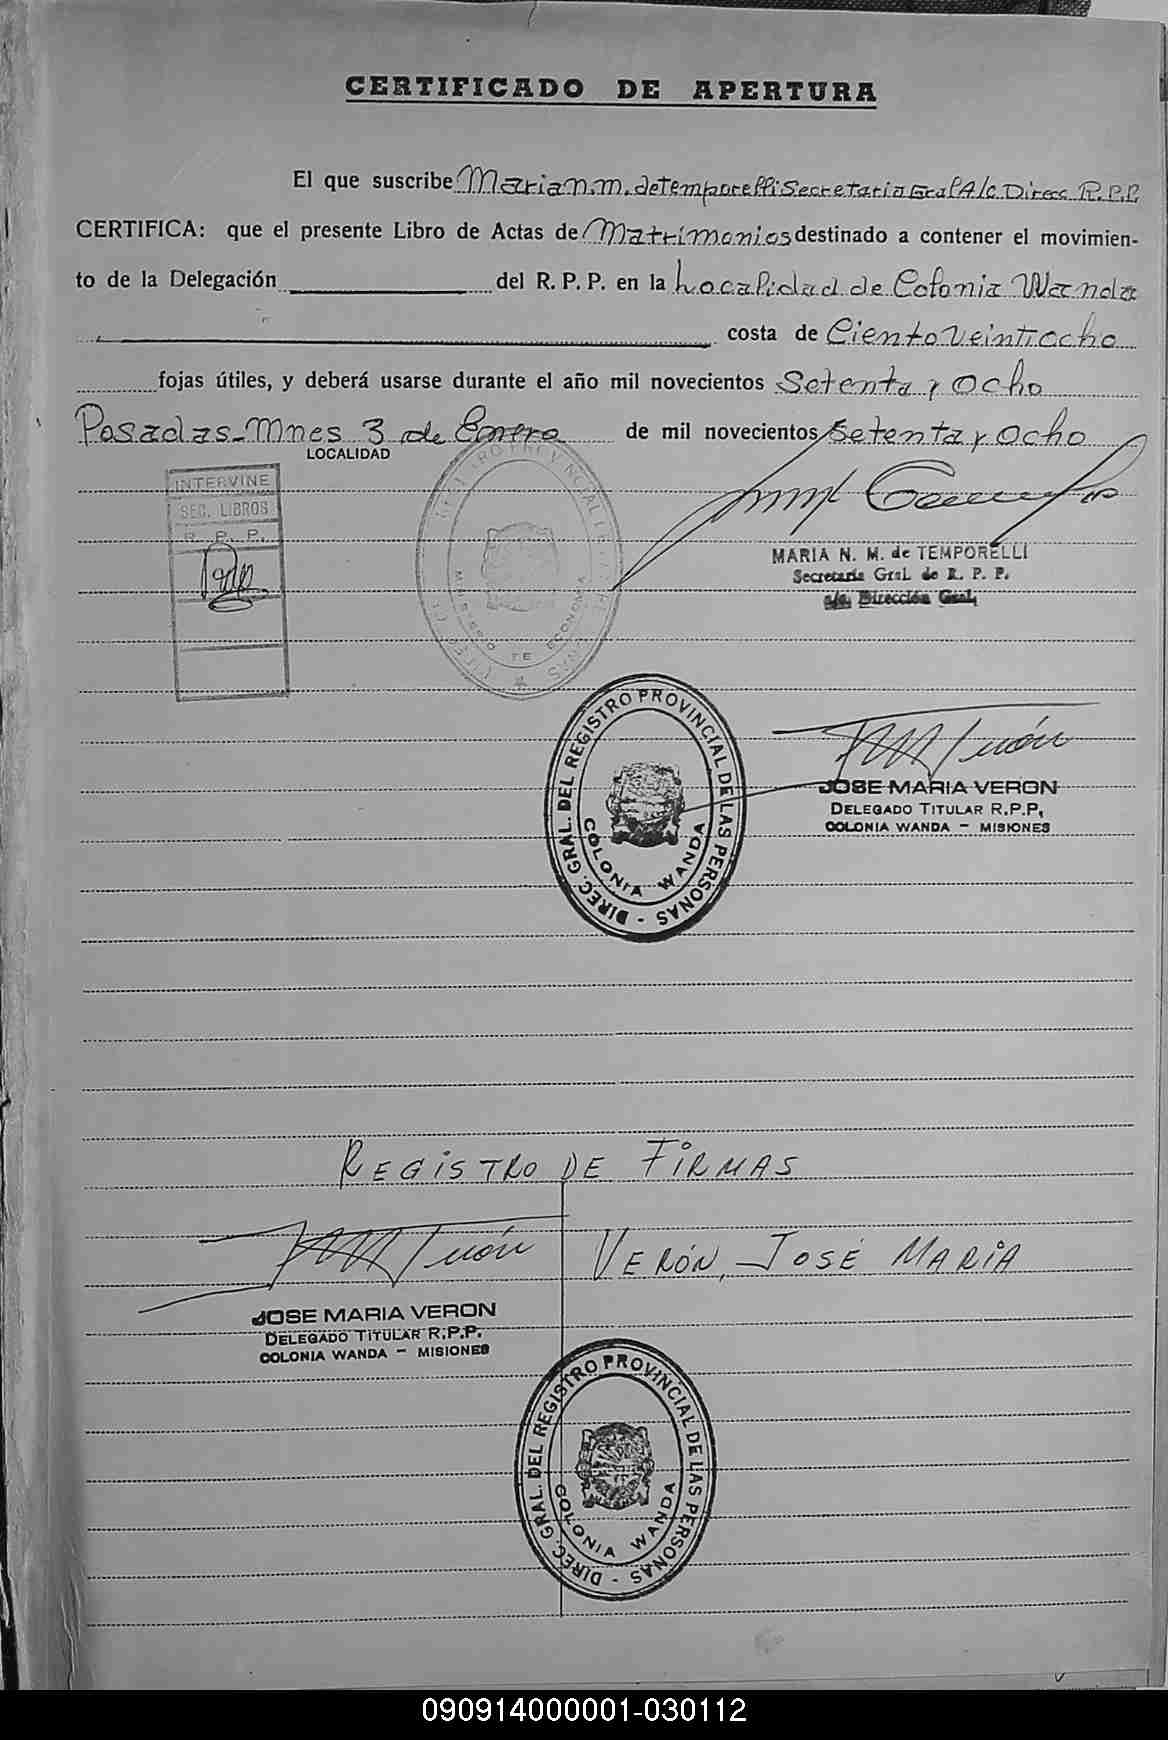 CERTIFICADO DE APERTURA
El que suscribe Maria N. M. de Temporelli Secretaria Gral A/c. Direcc R.P.P.
CERTIFICA: que el presente Libro de Actas de Matrimonios destinado a contener el movimien-
to de la Delegación del R. P. P. en la Localidad de Colonia Wanda
costa de Ciento veintiocho
fojas útiles, y deberá usarse durante el año mil novecientos Setenta y Ocho
Posadas-Mnes 3 de Enero de mil novecientos Setenta y Ocho
LOCALIDAD
INTERVINE
SEC. LIBROS
R. P. P.
MINISTERIO DE ECONOMIA
MARIA N. M. de TEMPORELLI
Secretaria Gral. de R. P. P.
a/c. Dirección Gral.
DIREC. GRAL. DEL REGISTRO PROVINCIAL DE LAS PERSONAS -
COLONIA WANDA
JOSE MARIA VERON
DELEGADO TITULAR R.P.P.
COLONIA WANDA - MISIONES
REGISTRO DE FIRMAS
VERÓN, JOSÉ MARIA
JOSE MARIA VERON
DELEGADO TITULAR R.P.P.
COLONIA WANDA - MISIONES
DIREC. GRAL. DEL REGISTRO PROVINCIAL DE LAS PERSONAS -
COLONIA WANDA
090914000001-030112